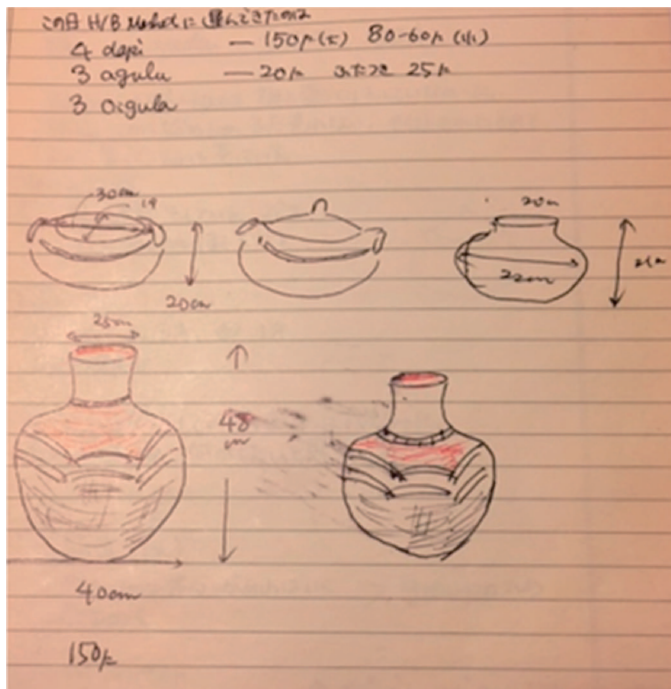 この日 H/B Mahdに 運んできたのは
4 dapi — 150pt(大) 80-60pt(小)
3 agulu — 20pt ふたつき 25pt
3 oigula
30cm
19
20cm
20cm
22cm
25cm
48
cm
40cm